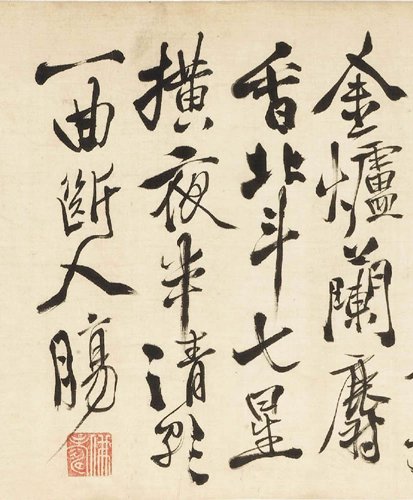 金爐蘭麝
香北斗七星
橫夜半清歌
一曲斷人腸